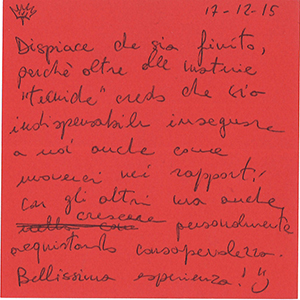 17-12-15
Dispiace che sia finito,
perchè oltre alle materie
"tecniche" credo che sia
indispensabile insegnare
a noi anche come
muoverci nei rapporti
con gli altri ma anche
crescere personalmente
acquistando consapevolezza.
Bellissima esperienza!